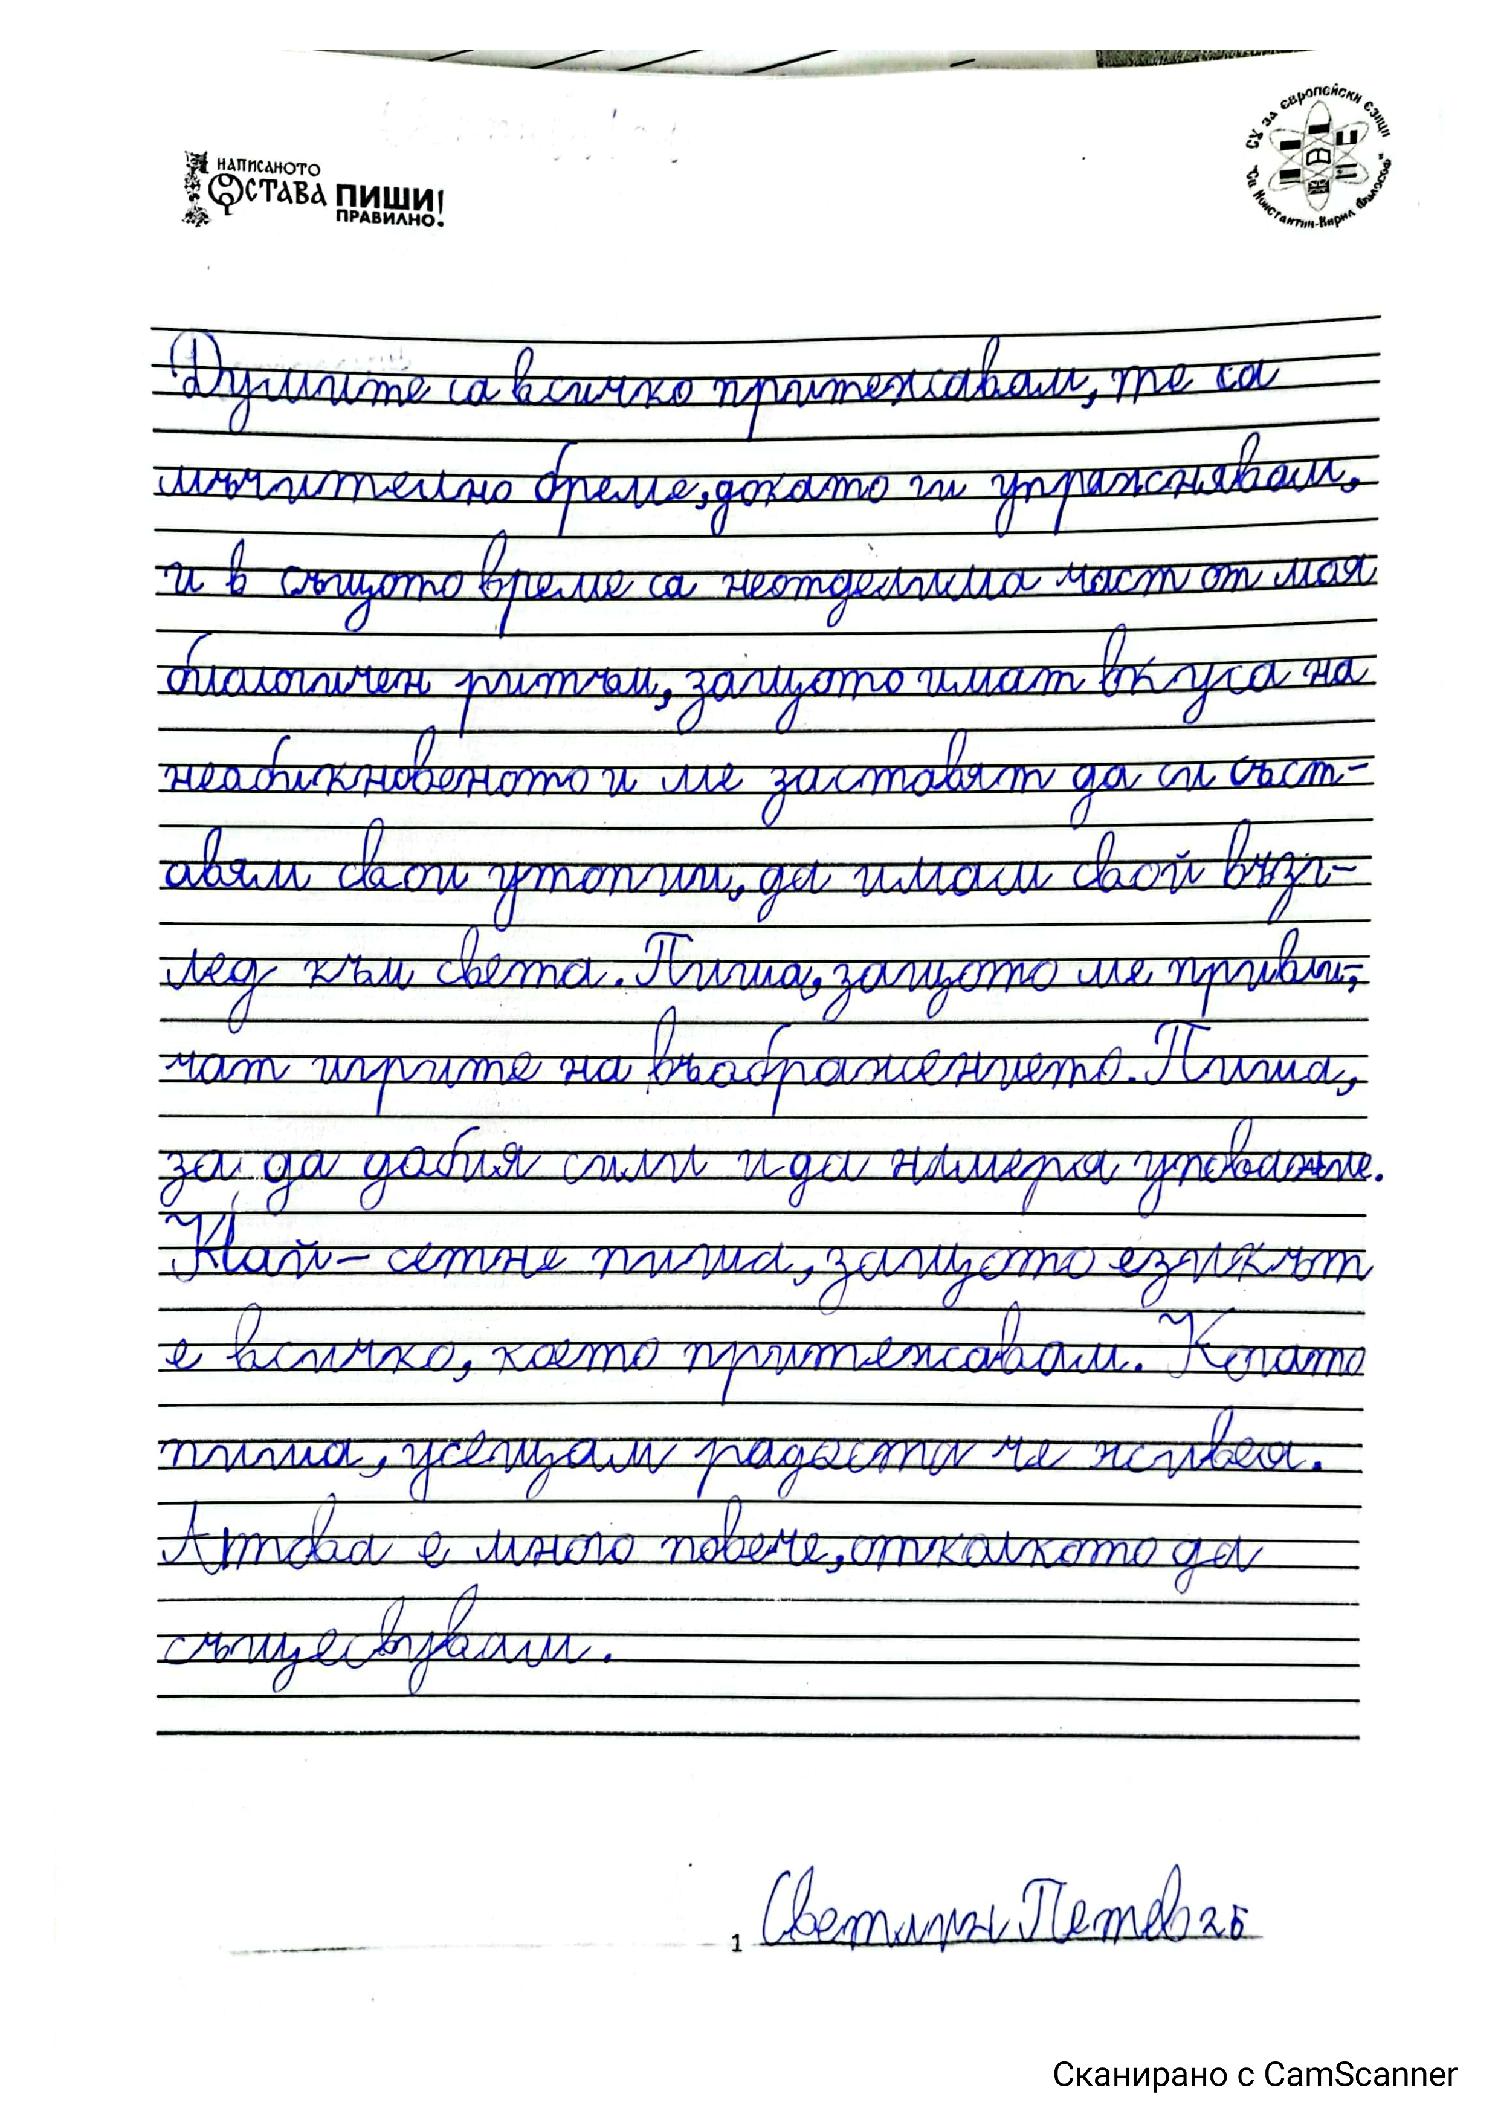 НАПИСАНОТО
ОСТАВА ПИШИ!
ПРАВИЛНО.
СУ ЗА ЕВРОПЕЙСКИ ЕЗИЦИ
"Св. Константин-Кирил Философ"
Думите са всичко притежавам, те са
мъчително бреме, докато ги упражнявам,
и в същото време са неотделима част от моя
биологичен ритъм, защото имат вкуса на
необикновеното и ме заставят да си съст-
авям свои утопии, да имам свой възг-
лед към света. Пиша, защото ме привли-
чат игрите на въображението. Пиша,
за да добия сили и да намеря упование.
Най-сетне пиша, защото езикът
е всичко, което притежавам. Когато
пиша, усещам радостта че живея.
Атова е много повече, отколкото да
съществувам.
1 Светлин Петев 2б
Сканирано с CamScanner